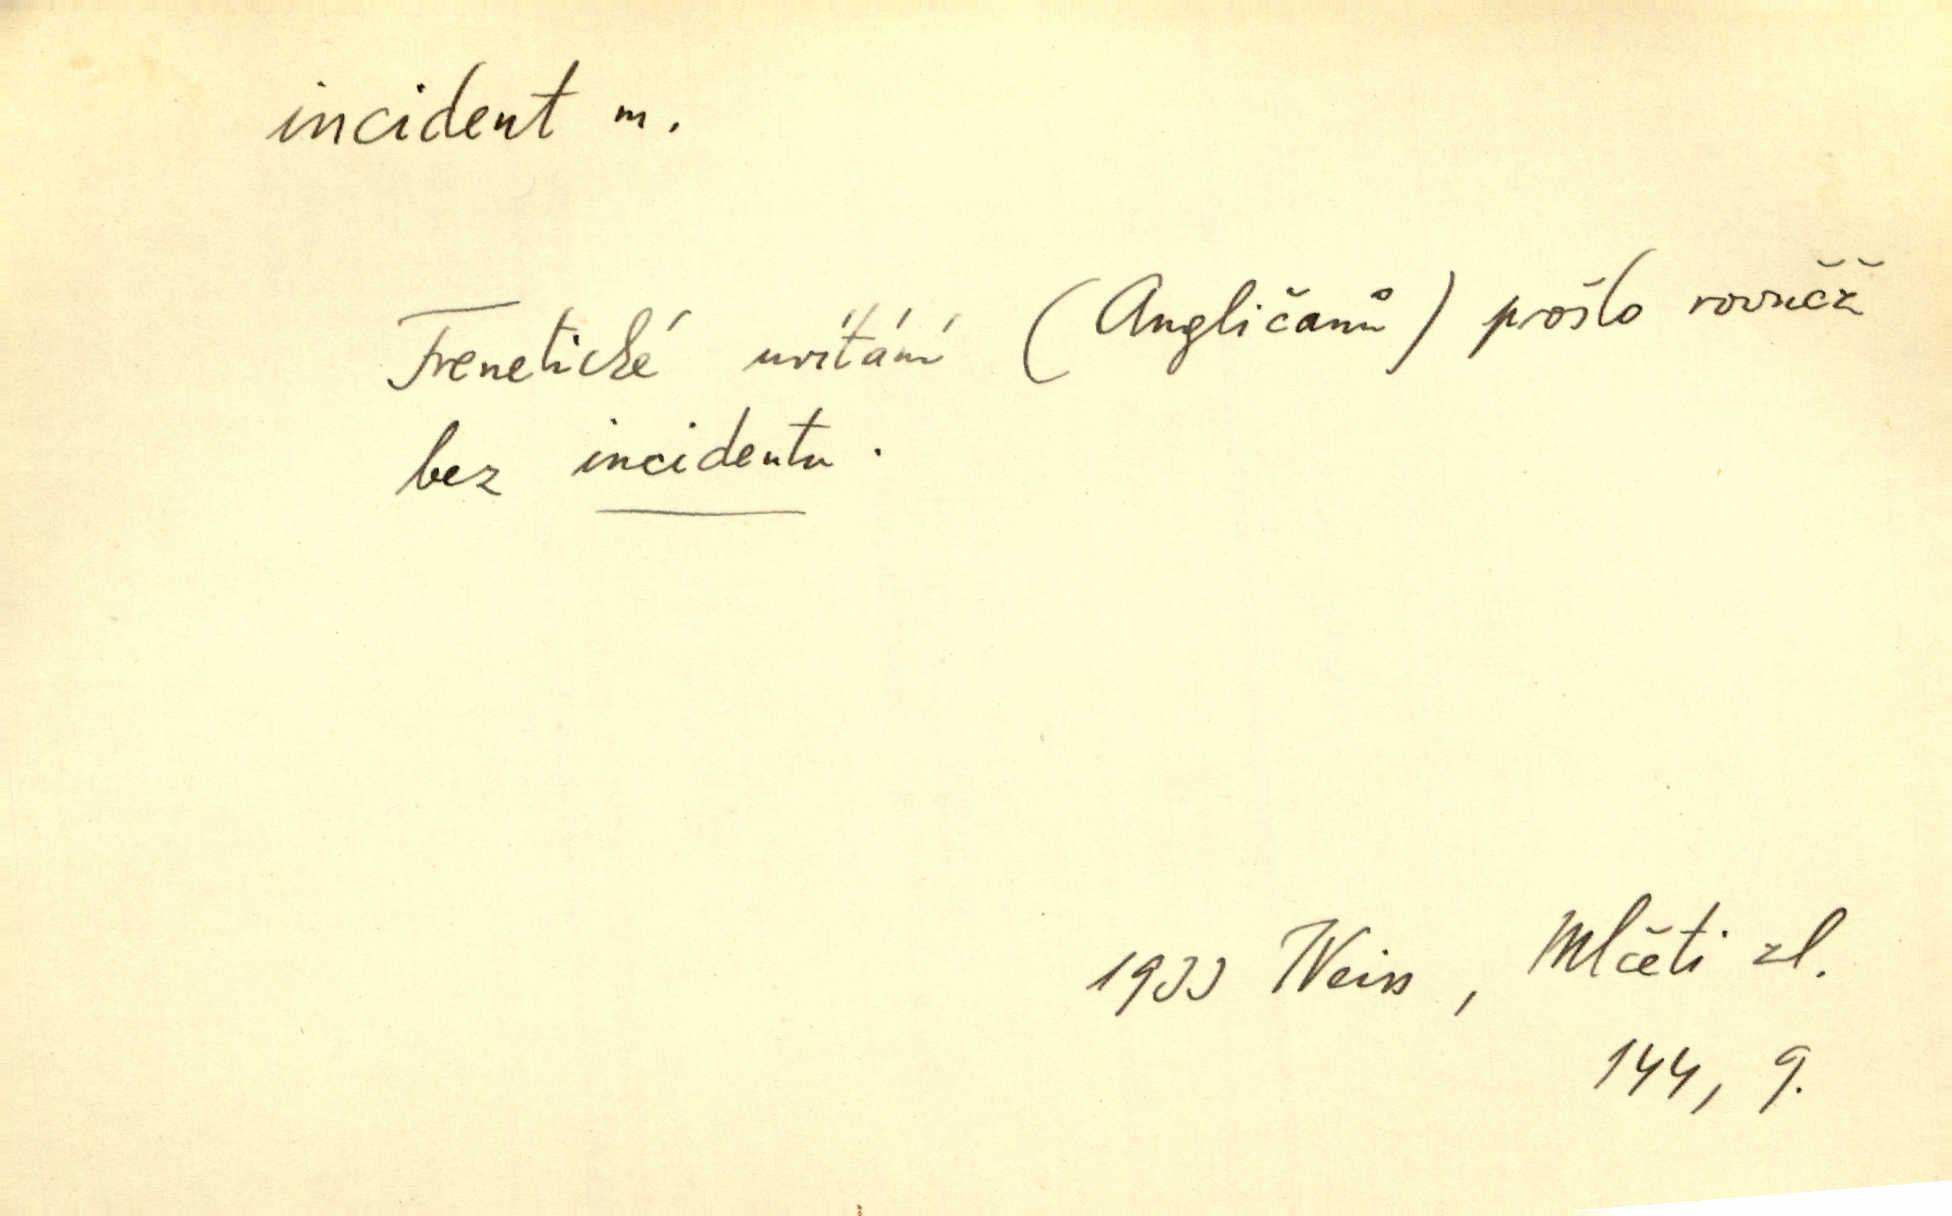 incident m.
Frenetické uvítání (Angličanů) prošlo rovněž
bez incidentu.
1933 Weiss, Mlčeti zl.
144, 9.